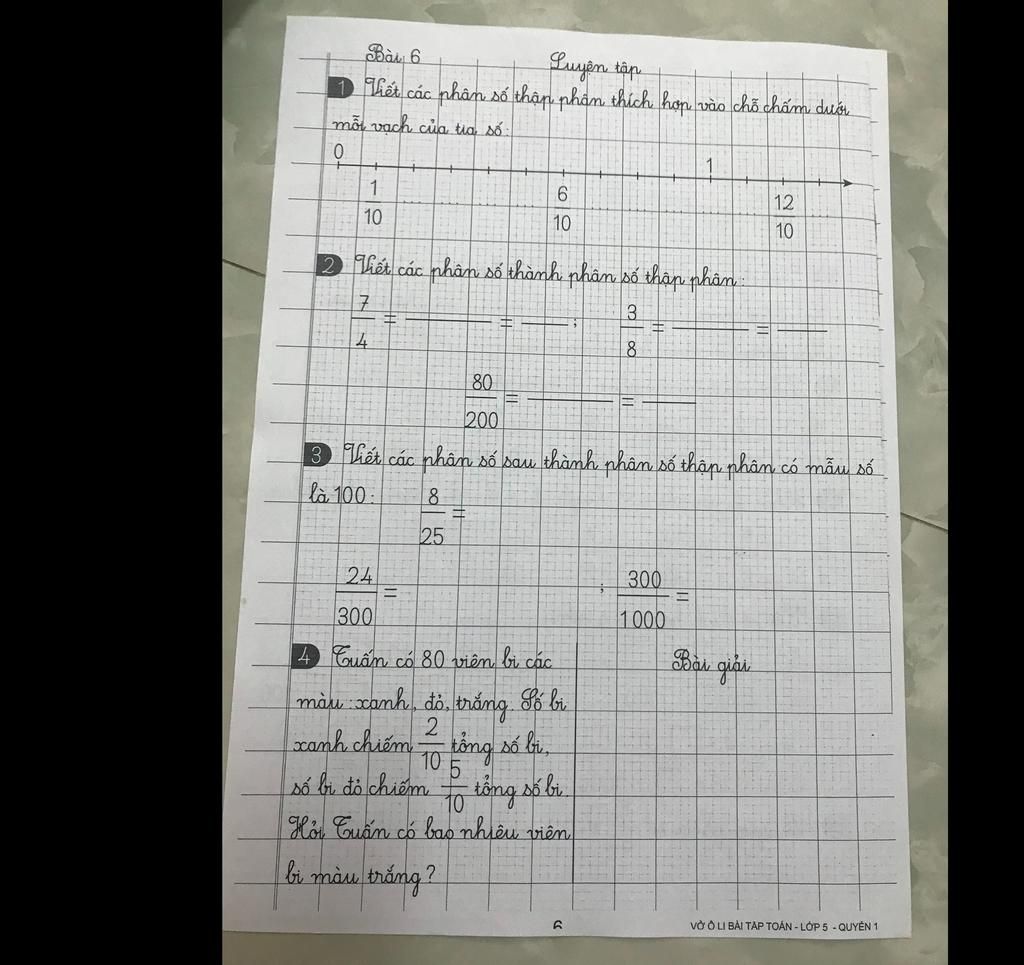 Bài 6 Luyện tập
1 Viết các phân số thập phân thích hợp vào chỗ chấm dưới
mỗi vạch của tia số:
0 1
1/10 6/10 12/10
2 Viết các phân số thành phân số thập phân:
7/4 = —— = —— ; 3/8 = —— = ——
80/200 = —— = ——
3 Viết các phân số sau thành phân số thập phân có mẫu số
là 100: 8/25 =
24/300 = ; 300/1000 =
4 Tuấn có 80 viên bi các Bài giải
màu: xanh, đỏ, trắng. Số bi
xanh chiếm 2/10 tổng số bi,
số bi đỏ chiếm 5/10 tổng số bi.
Hỏi Tuấn có bao nhiêu viên
bi màu trắng?
6 VỞ Ô LI BÀI TẬP TOÁN - LỚP 5 - QUYỂN 1